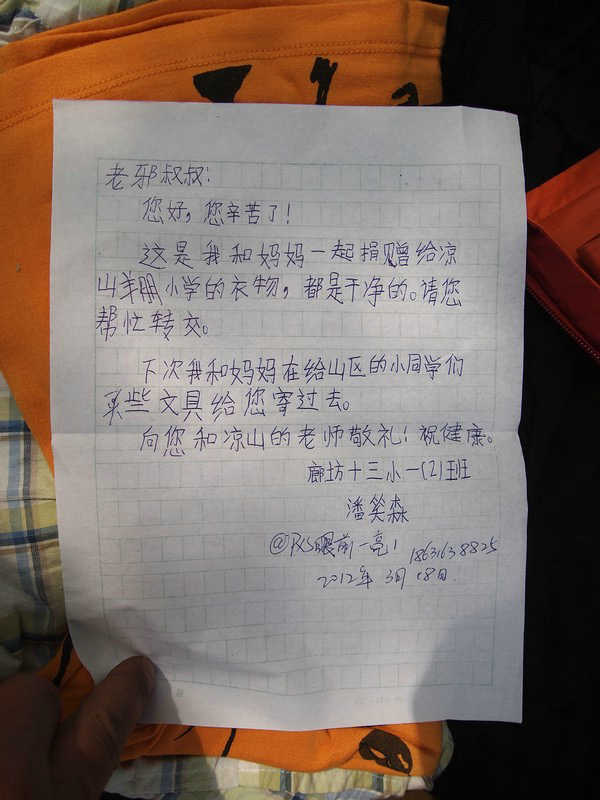 老邪叔叔:
您好,您辛苦了!
这是我和妈妈一起捐赠给凉
山羊朋小学的衣物,都是干净的。请您
帮忙转交。
下次我和妈妈在给山区的小同学们
买些文具给您寄过去。
向您和凉山的老师敬礼!祝健康。
廊坊十三小一(2)班
潘笑森
眼前一亮! 18631638825
2012年3月18日